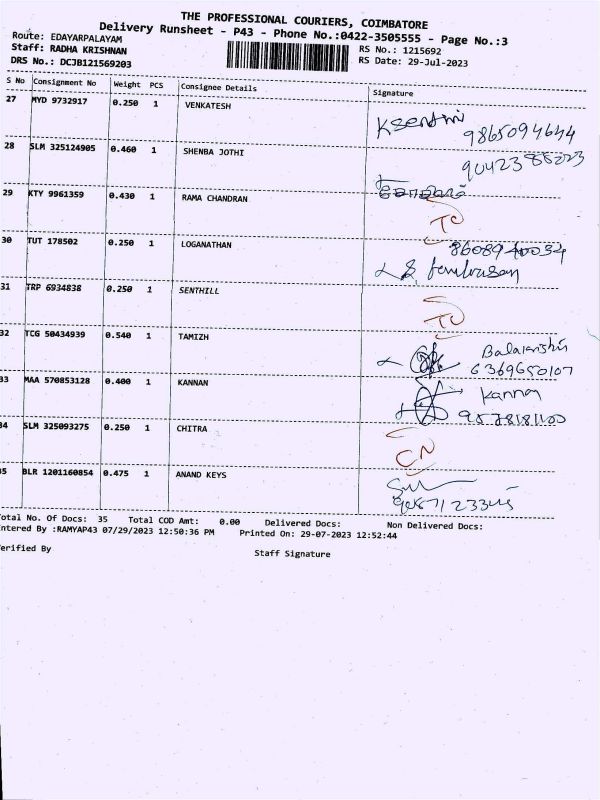 THE PROFESSIONAL COURIERS, COIMBATORE
Delivery Runsheet - P43 - Phone No.:0422-3505555 - Page No.:3
Route: EDAYARPALAYAM
Staff: RADHA KRISHNAN RS No.: 1215692
DRS No.: DCJB121569203 RS Date: 29-Jul-2023
S No Consignment No Weight PCS Consignee Details Signature
27 MYD 9732917 0.250 1 VENKATESH
9865094644
28 SLM 325124905 0.460 1 SHENBA JOTHI
29 KTY 9961359 0.430 1 RAMA CHANDRAN
30 TUT 178502 0.250 1 LOGANATHAN
31 TRP 6934838 0.250 1 SENTHILL
32 TCG 50434939 0.540 1 TAMIZH
6369650107
33 MAA 570853128 0.400 1 KANNAN
Kannan
34 SLM 325093275 0.250 1 CHITRA
CN
35 BLR 1201160854 0.475 1 ANAND KEYS
Total No. Of Docs: 35 Total COD Amt: 0.00 Delivered Docs: Non Delivered Docs:
Entered By :RAMYAP43 07/29/2023 12:50:36 PM Printed On: 29-07-2023 12:52:44
Verified By Staff Signature